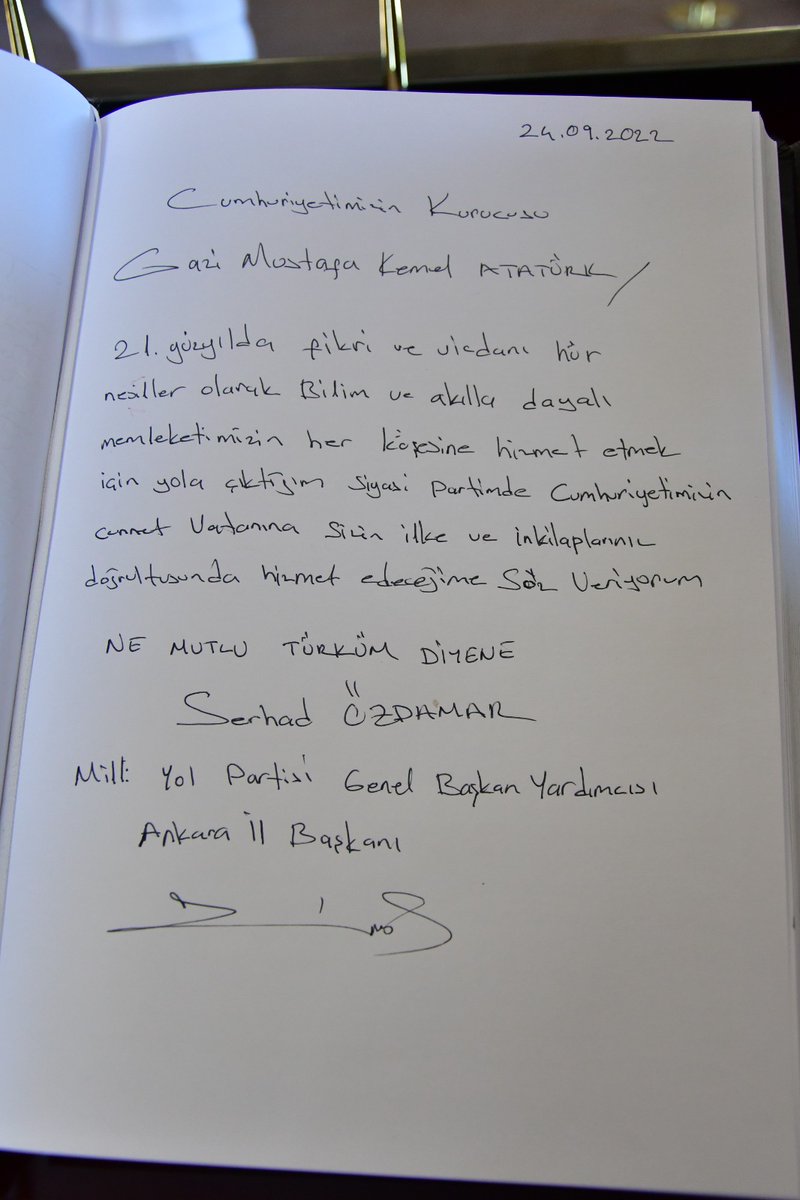 24.09.2022
Cumhuriyetimizin Kurucusu
Gazi Mustafa Kemal ATATÜRK/
21. yüzyılda fikri ve vicdanı hür
nesiller olarak Bilim ve akılla dayalı
memleketimizin her köşesine hizmet etmek
için yola çıktığım siyasi Partimde Cumhuriyetimizin
cennet Vatanına Sizin ilke ve inkilaplarınız
doğrultusunda hizmet edeceğime Söz Veriyorum
NE MUTLU TÜRKÜM DİYENE
Serhad ÖZDAMAR
Milli Yol Partisi Genel Başkan Yardımcısı
Ankara İl Başkanı